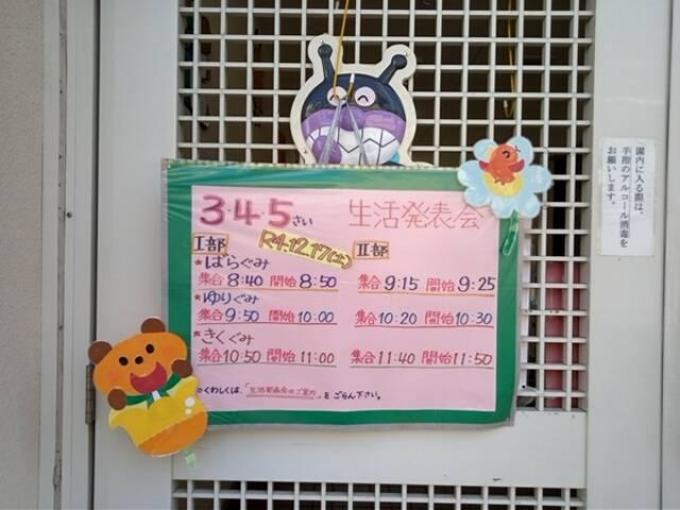 3・4・5さい 生活発表会
R4.12.17(土)
Ⅰ部 Ⅱ部
★ばらぐみ
集合 8:40 開始 8:50 集合 9:15 開始 9:25
★ゆりぐみ
集合 9:50 開始 10:00 集合 10:20 開始 10:30
★きくぐみ
集合 10:50 開始 11:00 集合 11:40 開始 11:50
※くわしくは、「生活発表会のご案内」をごらん下さい。
園内に入る際は、
手指のアルコール消毒を
お願いします。